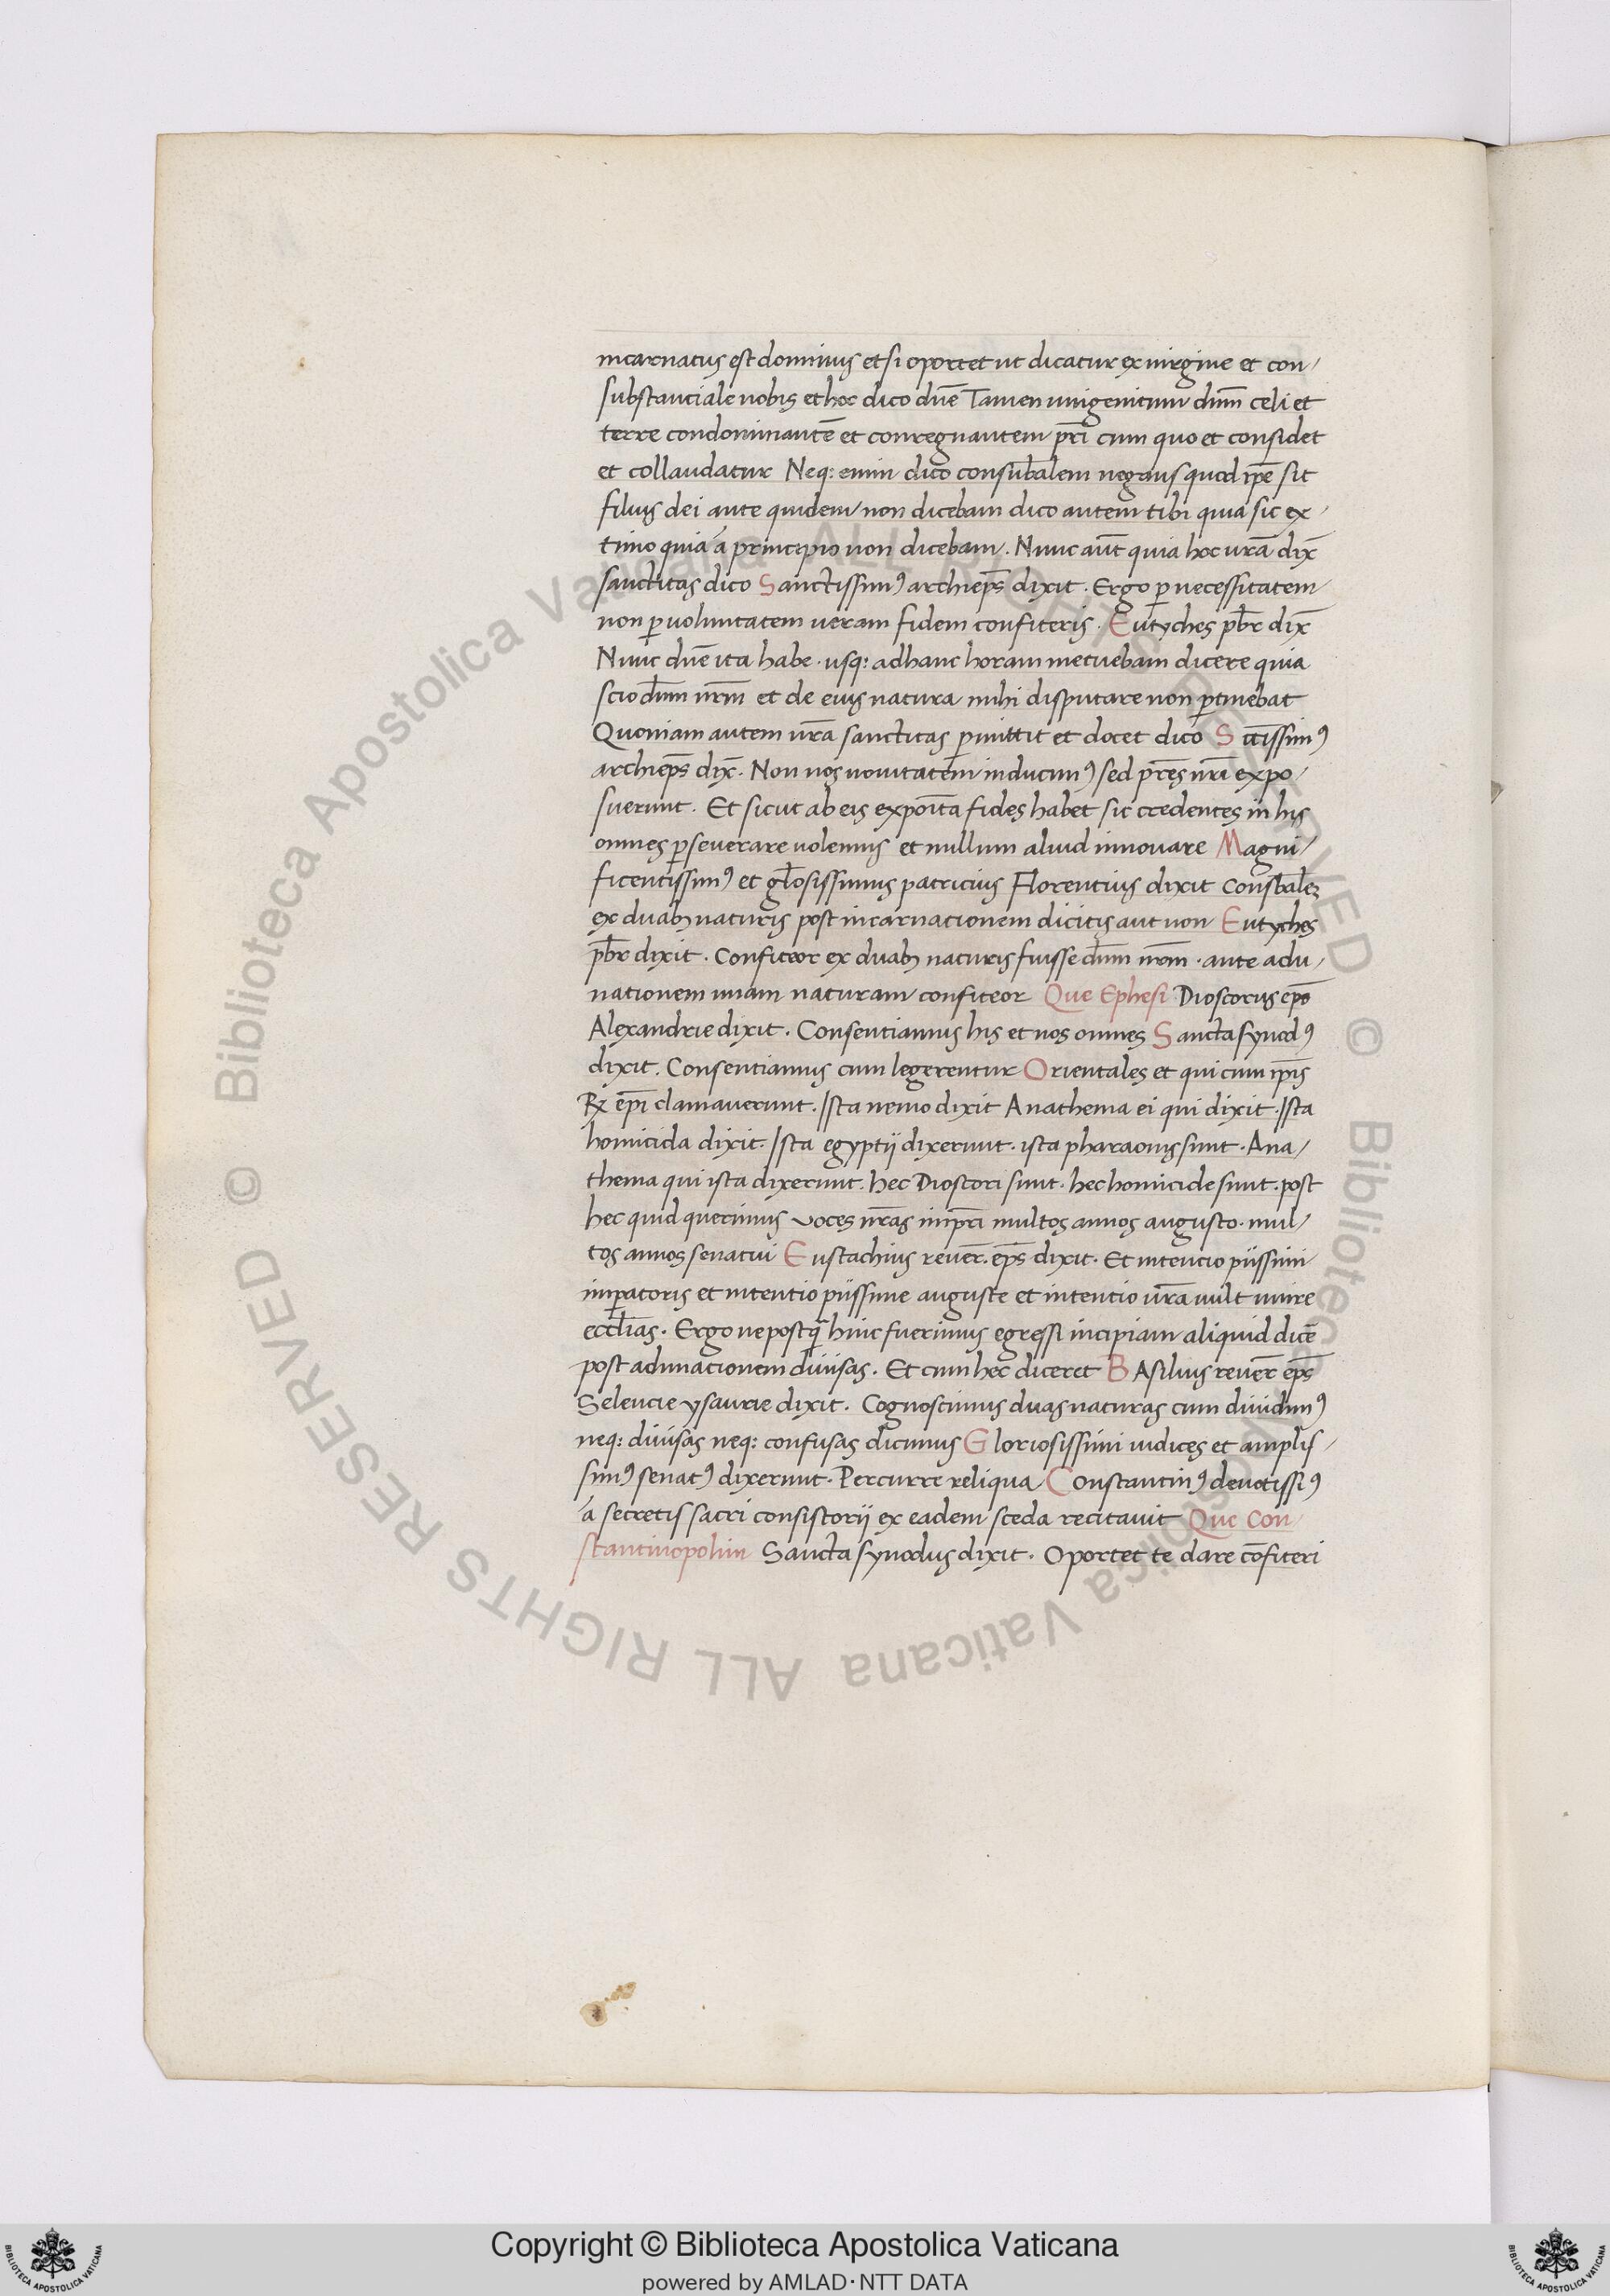 incarnatus est dominus et si oportet ut dicatur ex uirgine et con/
substanciale nobis et hoc dico dn̄e Tamen unigenitum dn̄m celi et
terre condominantē et conregnantem pr̄i cum quo et considet
et collaudatur Neq: enim dico consub̄alem negans quod ip̄e sit
filius dei ante quidem non dicebam dico autem tibi quia sic ex/
timo quia a principio non dicebam. Nunc aūt quia hoc ur̄a dix̄
sanctitas dico Sanctissimꝰ archiep̄s dixit. Ergo ꝑ necessitatem
non ꝑ uoluntatem ueram fidem confiteris. Eutyches pb̄r dix̄
Nunc dn̄e ita habe. usq: ad hanc horam metuebam dicere quia
scio dn̄m nr̄m et de eius natura mihi disputare non ꝑtinebat
Quoniam autem ur̄a sanctitas ꝑmittit et docet dico S ct̄issimꝰ
archiep̄s dix̄. Non nos nouitatem inducimꝰ sed pr̄es nr̄i expo/
suerunt. Et sicut ab eis expoīta fides habet sic credentes in his
omnes ꝑseuerare uolemus et nullum aliud innouare Magni/
ficentissimꝰ et gl̄osissimus patricius Florentius dixit Consb̄alē
ex duabꝫ naturis post incarnacionem dicitis aut non Eutyches
pb̄r dixit. Confiteor ex duabꝫ naturis fuisse dn̄m nr̄m. ante adu/
nationem unam naturam confiteor Que Ephesi Dioscorus ep̄s
Alexandrie dixit. Consentiamus his et nos omnes Sancta synodꝰ
dixit. Consentiamus cum legerentur Orientales et qui cum ip̄is
R̄ ep̄i clamauerunt. Ista nemo dixit Anathema ei qui dixit. Ista
homicida dixit. Ista egyptij dixerunt. ista pharaonis sunt. Ana/
thema qui ista dixerunt. hec Dioscori sunt. hec homicide sunt. post
hec quid querimus voces nr̄as imꝑr̄i multos annos augusto. mul/
tos annos senatui Eustachius reuer̄. ep̄s dixit. Et intencio piissimi
imꝑatoris et intentio piissime auguste et intentio ur̄a uult unire
eccl̄ias. Ergo ne postq̄ hinc fuerimus egressi incipiam aliquid dicē
post adunacionem diuisas. Et cum hec diceret BAsilius reuer̄ ep̄s
Seleucie ysaurie dixit. Cognoscimus duas naturas cum diuidimꝰ
neq: diuisas neq: confusas dicimus Gloriosissimi iudices et amplis/
simꝰ senatꝰ dixerunt. Percurre reliqua Constantinꝰ deuotissiꝰ
a secretis sacri consistorij ex eadem sceda recitauit Que Con/
stantinopolim Sancta synodus dixit. Oportet te clare cōfiteri
© Biblioteca Apostolica Vaticana ALL RIGHTS RESERVED © Biblioteca Apostolica Vaticana ALL RIGHTS RESERVED
Copyright © Biblioteca Apostolica Vaticana
powered by AMLAD·NTT DATA
BIBLIOTECA APOSTOLICA VATICANA
BIBLIOTECA APOSTOLICA VATICANA